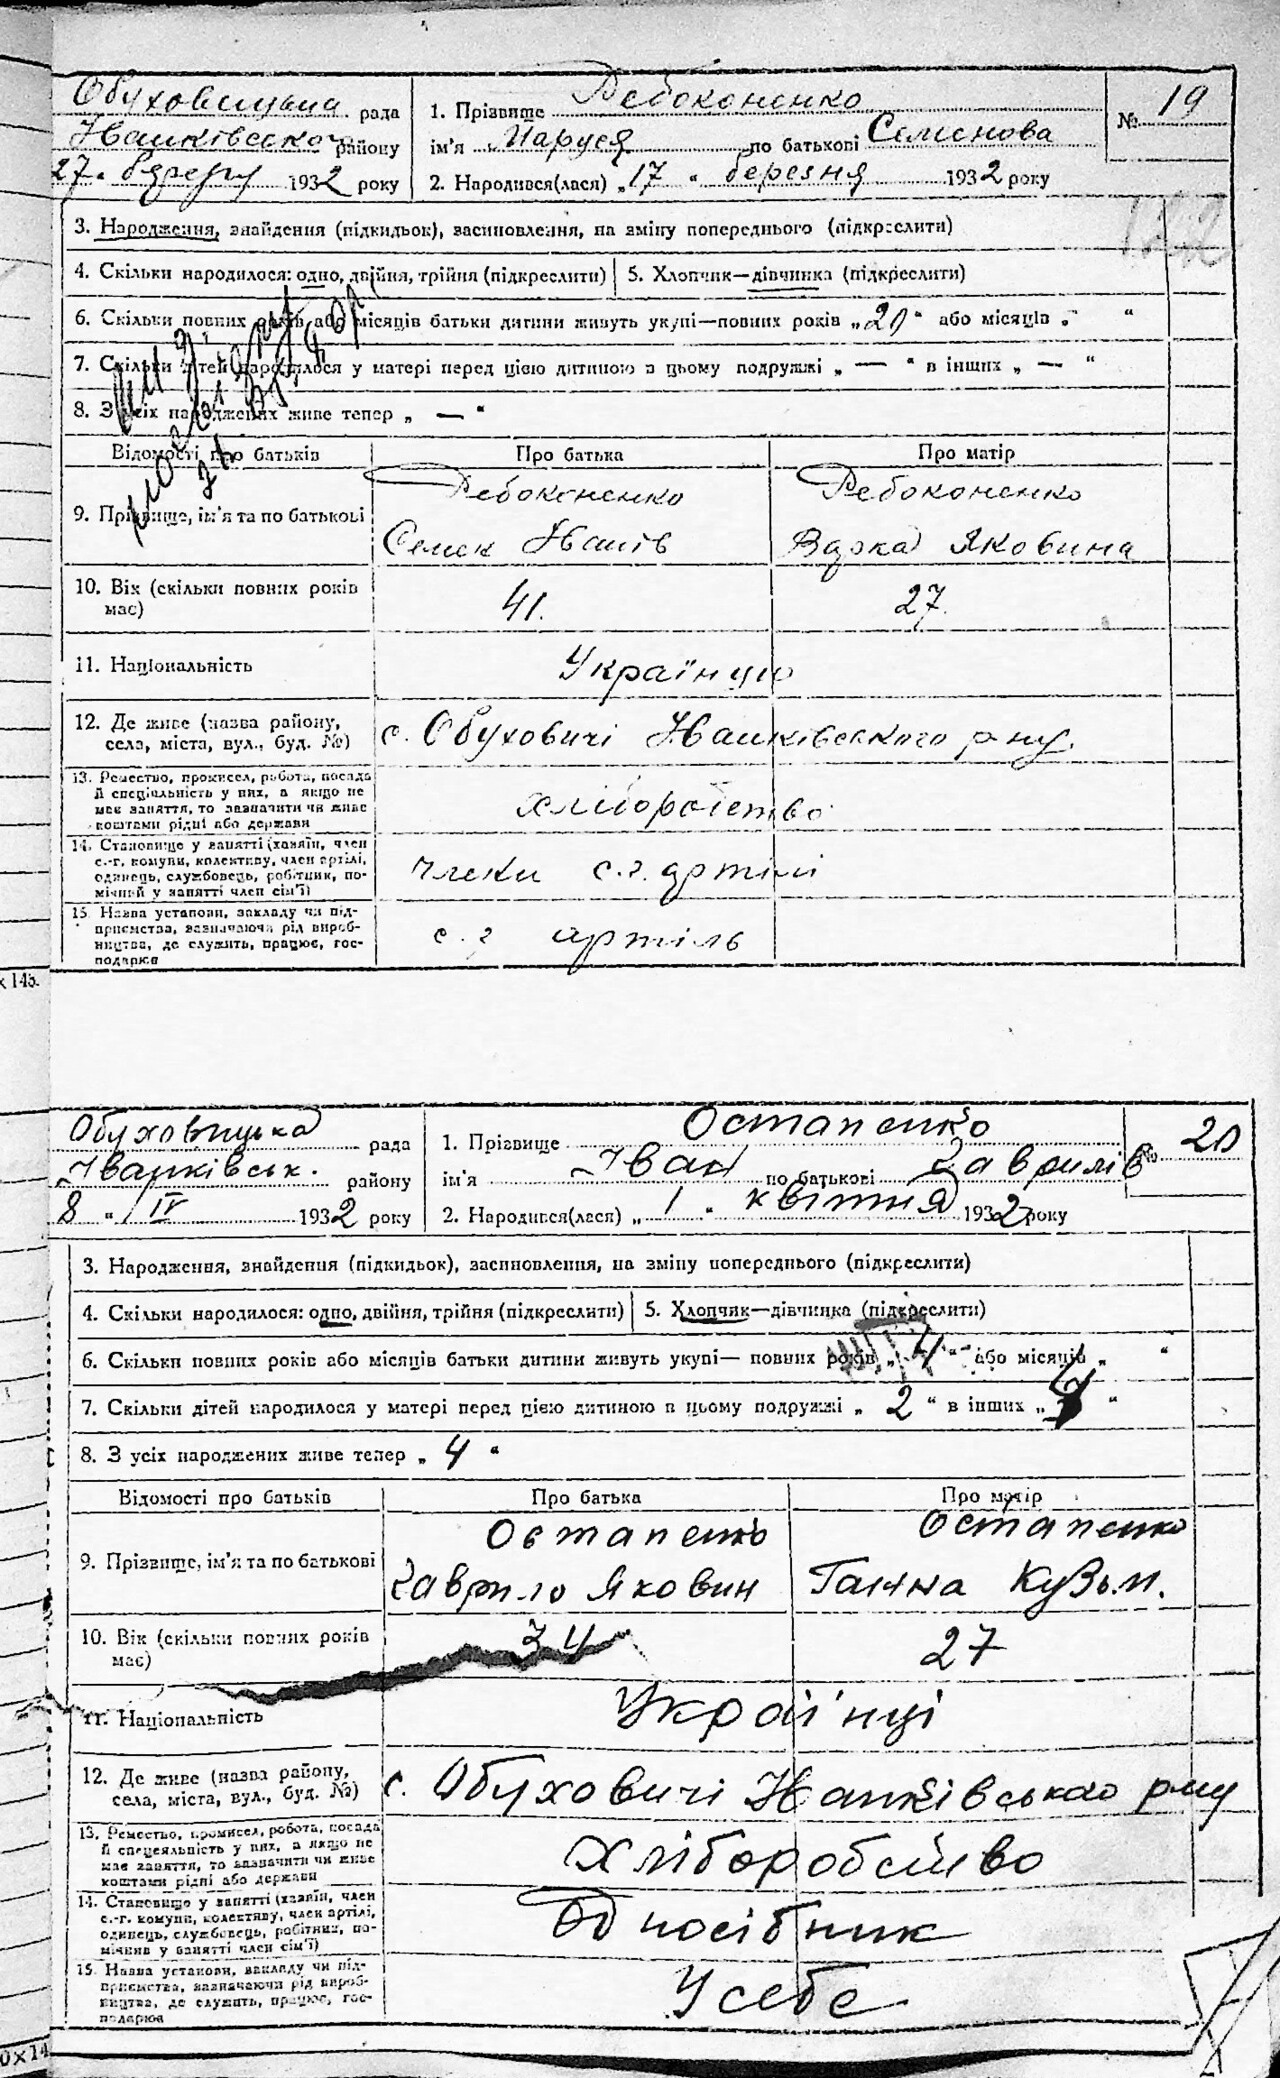 Обуховицька рада
Іванківського району
27. березня 1932 року
1. Прізвище Ребоконенко
ім'я Маруся по батькові Семенова
2. Народився(лася) „17“ березня 1932 року
№ 19
122
3. Народження, знайдення (підкидьок), засиновлення, на зміну попереднього (підкреслити)
4. Скільки народилося: одно, двійня, трійня (підкреслити) 5. Хлопчик—дівчинка (підкреслити)
6. Скільки повних років або місяців батьки дитини живуть укупі—повних років „20“ або місяців „ “
7. Скільки дітей народилося у матері перед цією дитиною в цьому подружжі „ — “ в інших „ — “
8. З усіх народжених живе тепер „ — “
Відомості про батьків Про батька Про матір
9. Прізвище, ім'я та по батькові
Ребоконенко Ребоконенко
Семен Іванів Варка Яковина
10. Вік (скільки повних років має) 41. 27.
11. Національність Українці
12. Де живе (назва району,
села, міста, вул., буд. №) с. Обуховичі Іванківського р-ну.
13. Ремество, промисел, робота, посада
й спеціяльність у них, а якщо не
має заняття, то зазначити чи живе
коштами рідні або держави
хліборобство
14. Становище у занятті (хазяїн, член
с.-г. комуни, колективу, член артілі,
одинець, службовець, робітник, по-
мічний у занятті член сім'ї)
члени с.г. артілі
15. Назва установи, закладу чи під-
приємства, зазначаючи рід вироб-
ництва, де служить, працює, гос-
подарює
с.г артіль
х 145.
Обуховицька рада
Іванківськ. району
8 „ IV 1932 року
1. Прізвище Остапенко
ім'я Іван по батькові Гаврилів
2. Народився(лася) „ 1 “ квітня 1932 року
№ 20
3. Народження, знайдення (підкидьок), засиновлення, на зміну попереднього (підкреслити)
4. Скільки народилося: одно, двійня, трійня (підкреслити) 5. Хлопчик—дівчинка (підкреслити)
6. Скільки повних років або місяців батьки дитини живуть укупі— повних років „ 4 “ або місяців „ “
7. Скільки дітей народилося у матері перед цією дитиною в цьому подружжі „ 2 “ в інших „ “
8. З усіх народжених живе тепер „ 4 “
Відомості про батьків Про батька Про матір
9. Прізвище, ім'я та по батькові
Остапенко Остапенко
Гаврило Яковин Ганна Кузьм.
10. Вік (скільки повних років має) 34 27
11. Національність Українці
12. Де живе (назва району,
села, міста, вул., буд. №) с. Обуховичі Іванківського р-ну
13. Ремество, промисел, робота, посада
й спецеяльність у них, а якщо не
має заняття, то зазначити чи живе
коштами рідні або держави
хліборобство
14. Становище у занятті (хазяїн, член
с.-г. комуни, колективу, член артілі,
одинець, службовець, робітник, по-
мічник у занятті член сім'ї)
Односібник
15. Назва установи, закладу чи під-
приємства, зазначаючи рід вироб-
ництва, де служить, працює, гос-
подарює
У себе
0×14